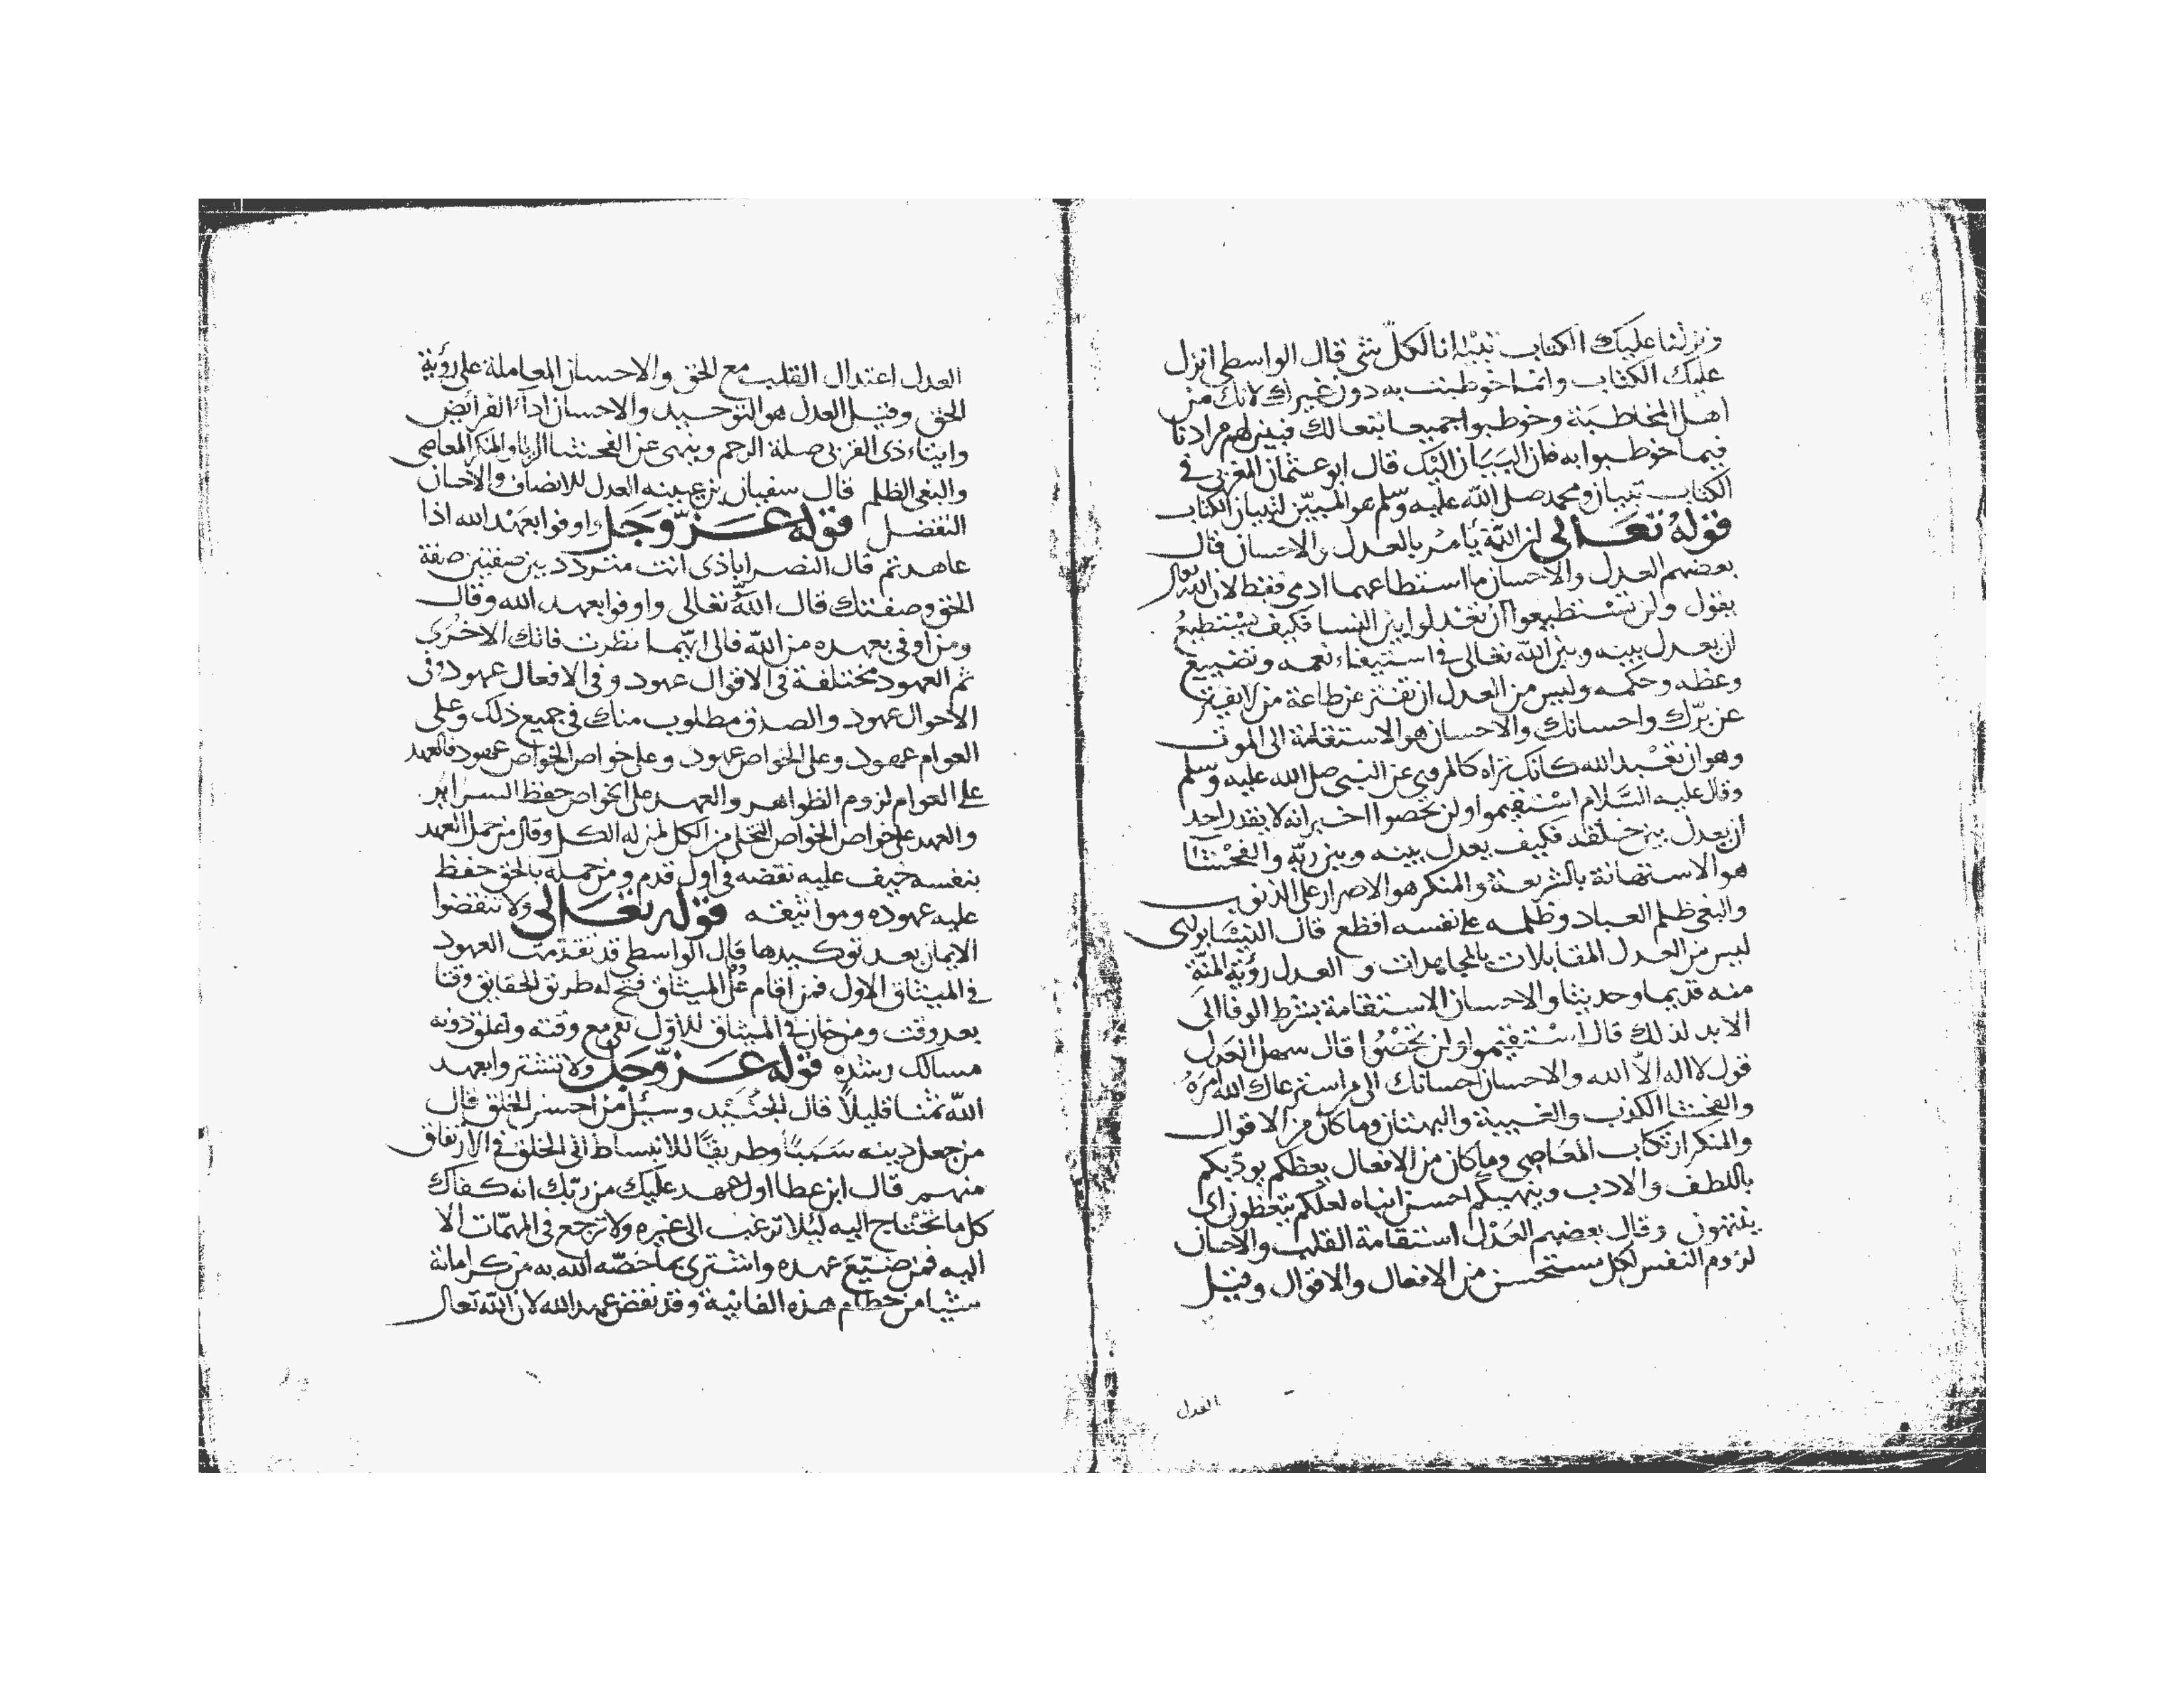 ونزلنا عليك الكتاب تبيانا لكل شى قال الواسطى انزل
عليك الكتاب وانما خوطبت به دون غيرك لانك من
اهل المخاطبة وخوطبوا جميعا تبعا لك فبين لهم مرادنا
فيما خوطبوا به فان البيان اليك قال ابو عثمان المغربى في
الكتاب تبيان ومحمد صلى الله عليه وسلم هو المبين لتبيان الكتاب
قوله تعالى ان الله يامر بالعدل والاحسان قال
بعضهم العدل والاحسان ما استطاعهما ادمى فقط لان الله تعالى
يقول ولن تستطيعوا ان تعدلوا بين النسا فكيف يستطيع
ان يعدل بينه وبين الله تعالى في استيفاء نعمه وتضييع
وعظه وحكمه وليس من العدل ان تفتر عن طاعة من لا يفتر
عن برك واحسانك والاحسان هو الاستقامة الى الموت
وهو ان تعبد الله كانك تراه كالمروى عن النبى صلى الله عليه وسلم
وقال عليه السلام استقيموا ولن تحصوا اخبر انه لا يقدر احد
ان يعدل بين خلقه فكيف يعدل بينه وبين ربه والفحشا
هو الاستهانة بالشريعة والمنكر هو الاصرار على الذنوب
والبغى ظلم العباد وظلمه على نفسه افظع قال النيسابورى
ليس من العدل المقابلات بالمجاهدات و العدل رؤية المنة
منه قديما وحديثا والاحسان الاستقامة بشرط الوفا الى
الابد لذلك قال استقيموا ولن تحصوا قال سهل العدل
قول لا اله الا الله والاحسان احسانك الى من استرعاك الله امره
والفحشا الكذب والغيبة والبهتان وما كان من الاقوال
والمنكر ارتكاب المعاصى وما كان من الافعال يعظكم يودبكم
باللطف والادب وينهيكم احسن انباه لعلكم يتعظون اى
ينتهون وقال بعضهم العدل استقامة القلب والاحسان
لزوم النفس لكل مستحسن من الافعال والاقوال وقيل
العدل
العدل اعتدال القلب مع الحق والاحسان المعاملة على رؤية
الحق وقيل العدل هو التوحيد والاحسان اداء الفرائض
وايتاء ذى القربى صلة الرحم وينهى عن الفحشا الزنا والمنكر المعاصى
والبغى الظلم قال سفيان بن عيينه العدل للانصاف والاحسان
التفضل قوله عز وجل واوفوا بعهد الله اذا
عاهدتم قال النصراباذى انت متردد بين صفتين صفة
الحق وصفتك قال الله تعالى واوفوا بعهد الله وقال
ومن اوفى بعهده من الله فالى ايهما نظرت فاتك الاخرى
ثم العهود مختلفة في الاقوال عهود وفى الافعال عهود وفى
الاحوال عهود والصدق مطلوب منك في جميع ذلك وعلى
العوام عهود وعلى الخواص عهود وعلى خواص الخواص عهود فالعهد
على العوام لزوم الظواهر والعهد على الخواص حفظ السراير
والعهد على خواص الخواص التخلى من الكل لمن له الكل وقال من حمل العهد
بنفسه خيف عليه نقضه في اول قدم ومن حمله بالحق حفظ
عليه عهوده ومواثيقه قوله تعالى ولا تنقضوا
الايمان بعد توكيدها قال الواسطى قد تقدمت العهود
في الميثاق الاول فمن اقام على الميثاق فتح له طريق الحقايق وقتا
بعد وقت ومن خان في الميثاق للاول بقى مع وقته واغلق دونه
مسالك رشده قوله عز وجل ولا تشتروا بعهد
الله ثمنا قليلا قال الجنيد وسئل من احسن الخلق قال
من جعل دينه سببا وطريقا للانبساط الى الخلق في الارتفاق
منهم قال ابن عطا اول عهد عليك من ربك انه كفاك
كل ما تحتاج اليه ليلا ترغب الى غيره ولا ترجع في المهمات الا
اليه فمن ضيع عهده واشترى بما خصه الله به من كراماته
شيا من حطام هذه الفانية وقد نقض عهد الله لان الله تعالى